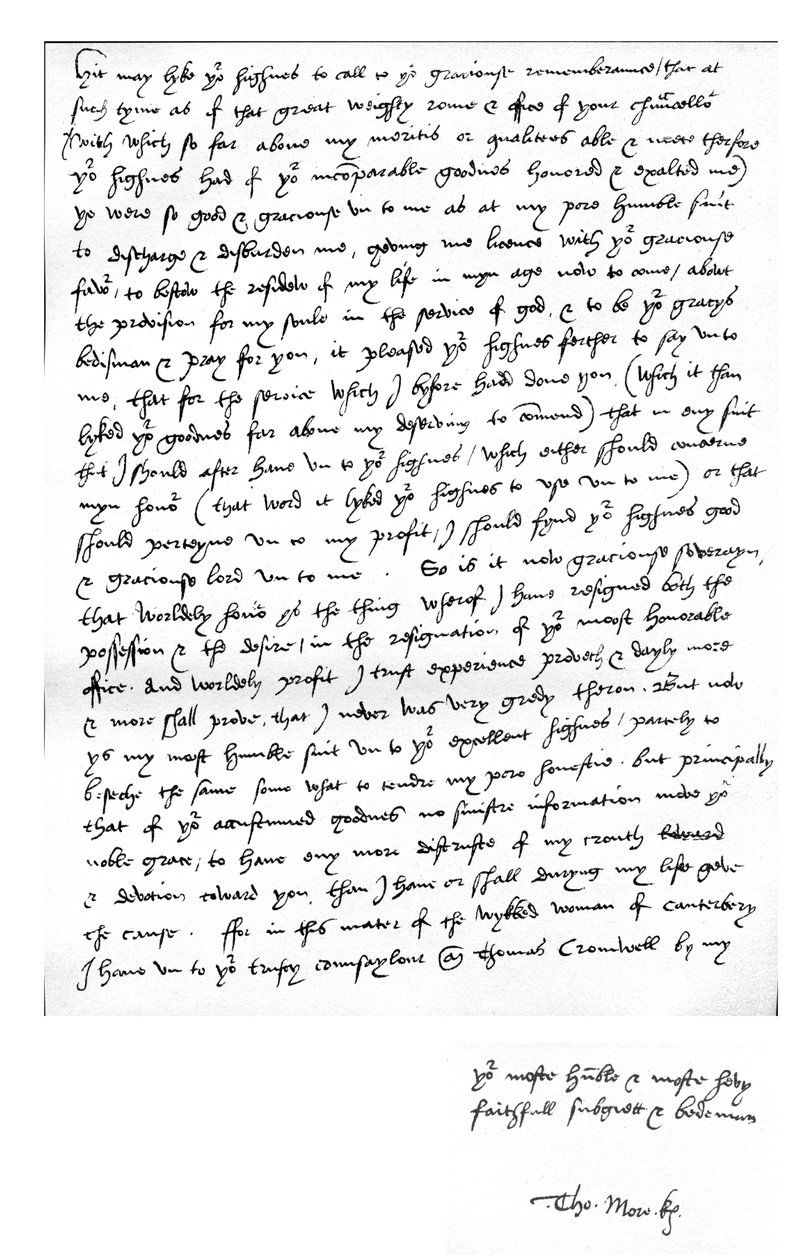 Hit may lyke yor highnes to call to yor graciouse rememberaunce / that at
such tyme as of that great weighty rome & office of your chauncellor
(with which so far above my meritis or qualitees able & mete therfore
yor highnes had of yor incomparable goodnes honored & exalted me)
ye were so good & graciouse un to me as at my pore humble suit
to discharge & disburden me, geving me licence with yor graciouse
favor / to bestow the residew of my life in myn age now to come / abowt
the provision for my soule in the service of god, & to be yor gracys
bedisman & pray for you, it pleased yor highnes ferther to say unto
me, that for the service which I byfore hadd done you (which it than
lyked yor goodnes far above my deserving to comend) that in eny suit
that I should after have un to yor highnes / which either should concerne
myn honor (that word it lyked yor highnes to use un to me) or that
should perteyne un to my profit / I should fynd yor highnes good
& graciouse lord un to me . So is it now graciouse soverayn,
that worldely honor ys the thing wherof I have resigned both the
possession & the desire / in the resignation of yor moost honorable
office. And worldely profit I trust experience proveth & dayly more
& more shall prove, that I never was very gredy theron. But now
ys my most humble suit un to yor excellent highnes / partely to
beseche the same some what to tendre my pore honestie. but principally
that of yor accustumed goodnes no sinistre information move yor
noble grace / to have eny more distruste of my trouth toward
& devotion toward you, than I have or shall duryng my life geve
the cause. ffor in this mater of the wykked woman of canterbery
I have un to yor trusty counsaylour Thomas Cromwell by my
yor moste humble & moste hevy
faithfull subgiett & bedeman
Tho. More. kg.